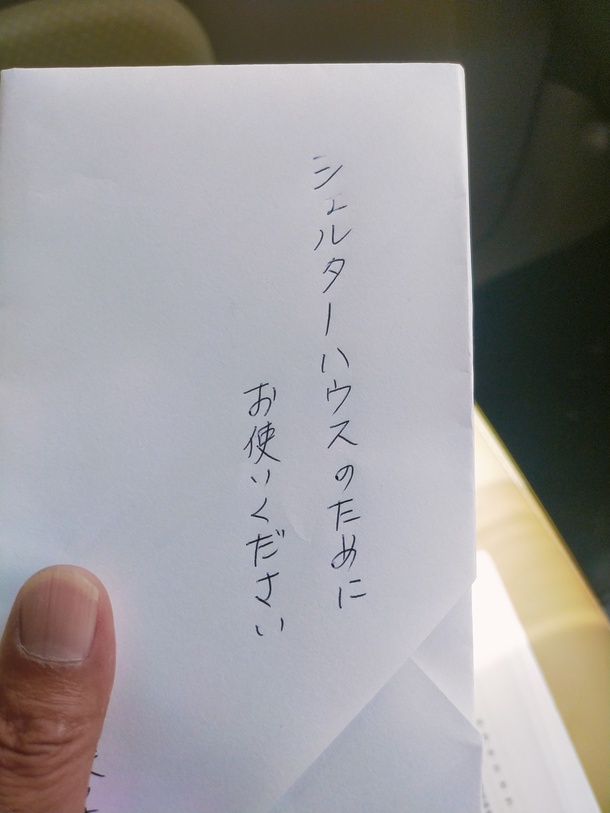 シェルターハウスのために
お使いください